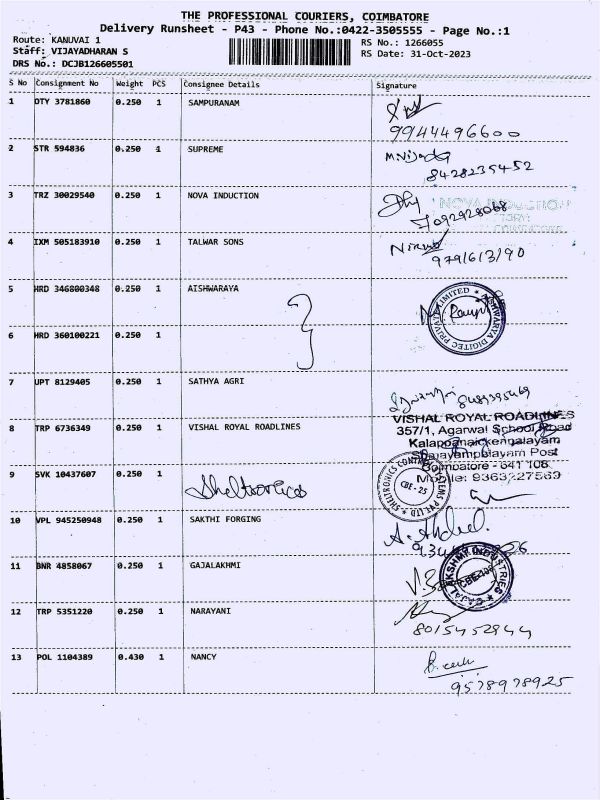 THE PROFESSIONAL COURIERS, COIMBATORE
Delivery Runsheet - P43 - Phone No.:0422-3505555 - Page No.:1
Route: KANUVAI 1
RS No.: 1266055
Staff: VIJAYADHARAN S
RS Date: 31-Oct-2023
DRS No.: DCJB126605501
S No Consignment No Weight PCS Consignee Details Signature
1 DTY 3781860 0.250 1 SAMPURANAM
9944496600
2 STR 594836 0.250 1 SUPREME
8428235452
3 TRZ 30029540 0.250 1 NOVA INDUCTION
NOVA INDUCTION
7092928068
4 IXM 505183910 0.250 1 TALWAR SONS
9791613190
5 HRD 346800348 0.250 1 AISHWARAYA
AISHWARYA DIGITEC PRIVATE LIMITED
6 HRD 360100221 0.250 1
7 UPT 8129405 0.250 1 SATHYA AGRI
8 TRP 6736349 0.250 1 VISHAL ROYAL ROADLINES
VISHAL ROYAL ROADLINES
357/1, Agarwal School Road
Kalappanaickenpalayam
Somayampalayam Post
Coimbatore - 641 108
Mobile: 9363227569
9 SVK 10437607 0.250 1 Sheltronics
CBE - 25
10 VPL 945250948 0.250 1 SAKTHI FORGING
11 BNR 4858067 0.250 1 GAJALAKHMI
GAJALAKSHMI INDUSTRIES
12 TRP 5351220 0.250 1 NARAYANI
8015452844
13 POL 1104389 0.430 1 NANCY
9578978925